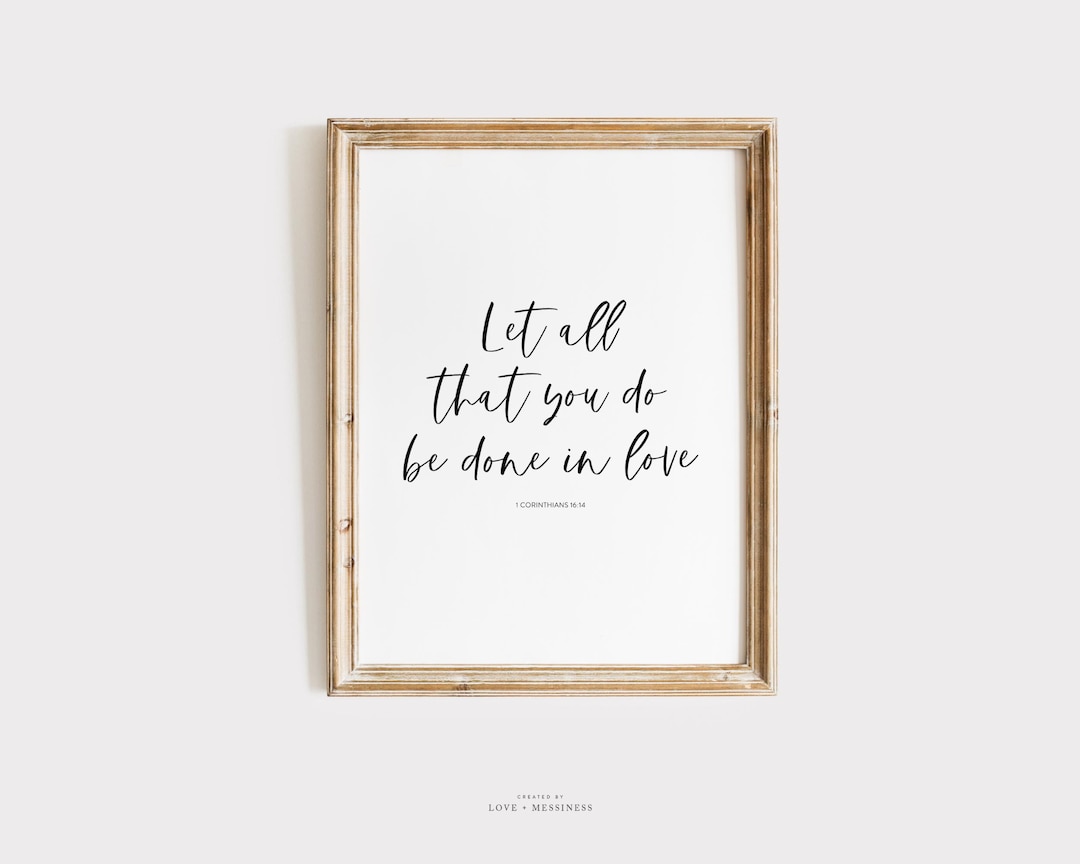 Let all
that you do
be done in love
1 CORINTHIANS 16:14
CREATED BY
LOVE + MESSINESS